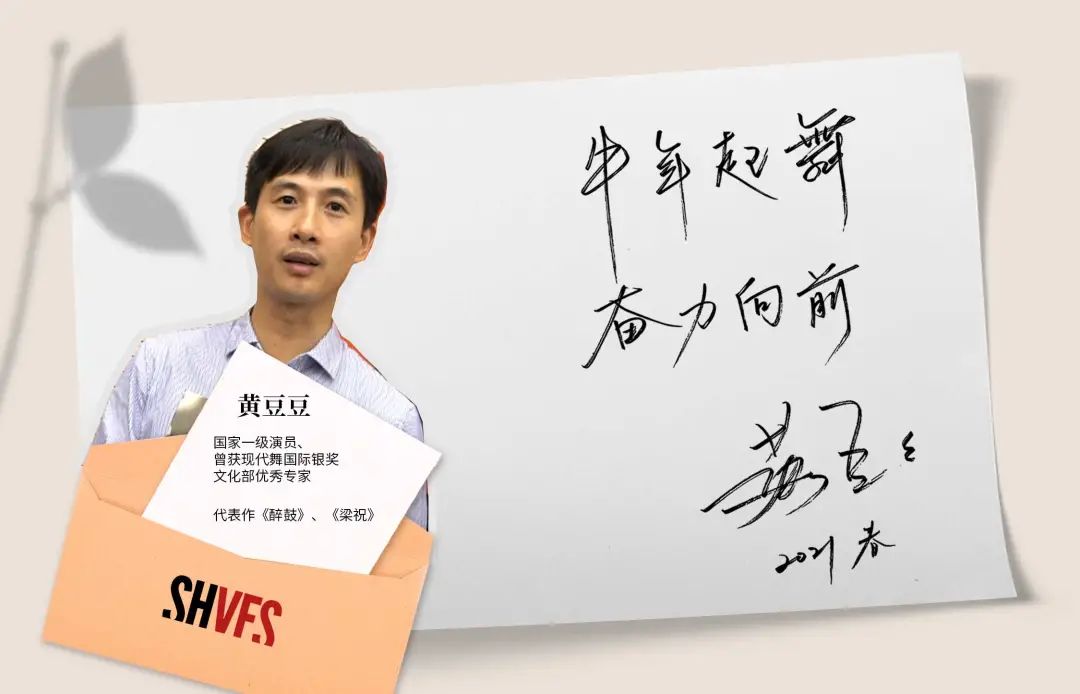 牛年起舞
奋力向前
黄豆豆
2021 春
黄豆豆
国家一级演员、
曾获现代舞国际银奖
文化部优秀专家
代表作《醉鼓》、《梁祝》
.SHVFS